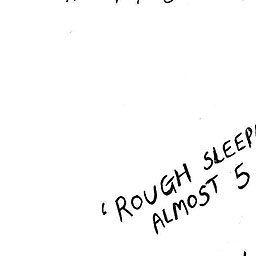 'ROUGH SLEEP
ALMOST 5